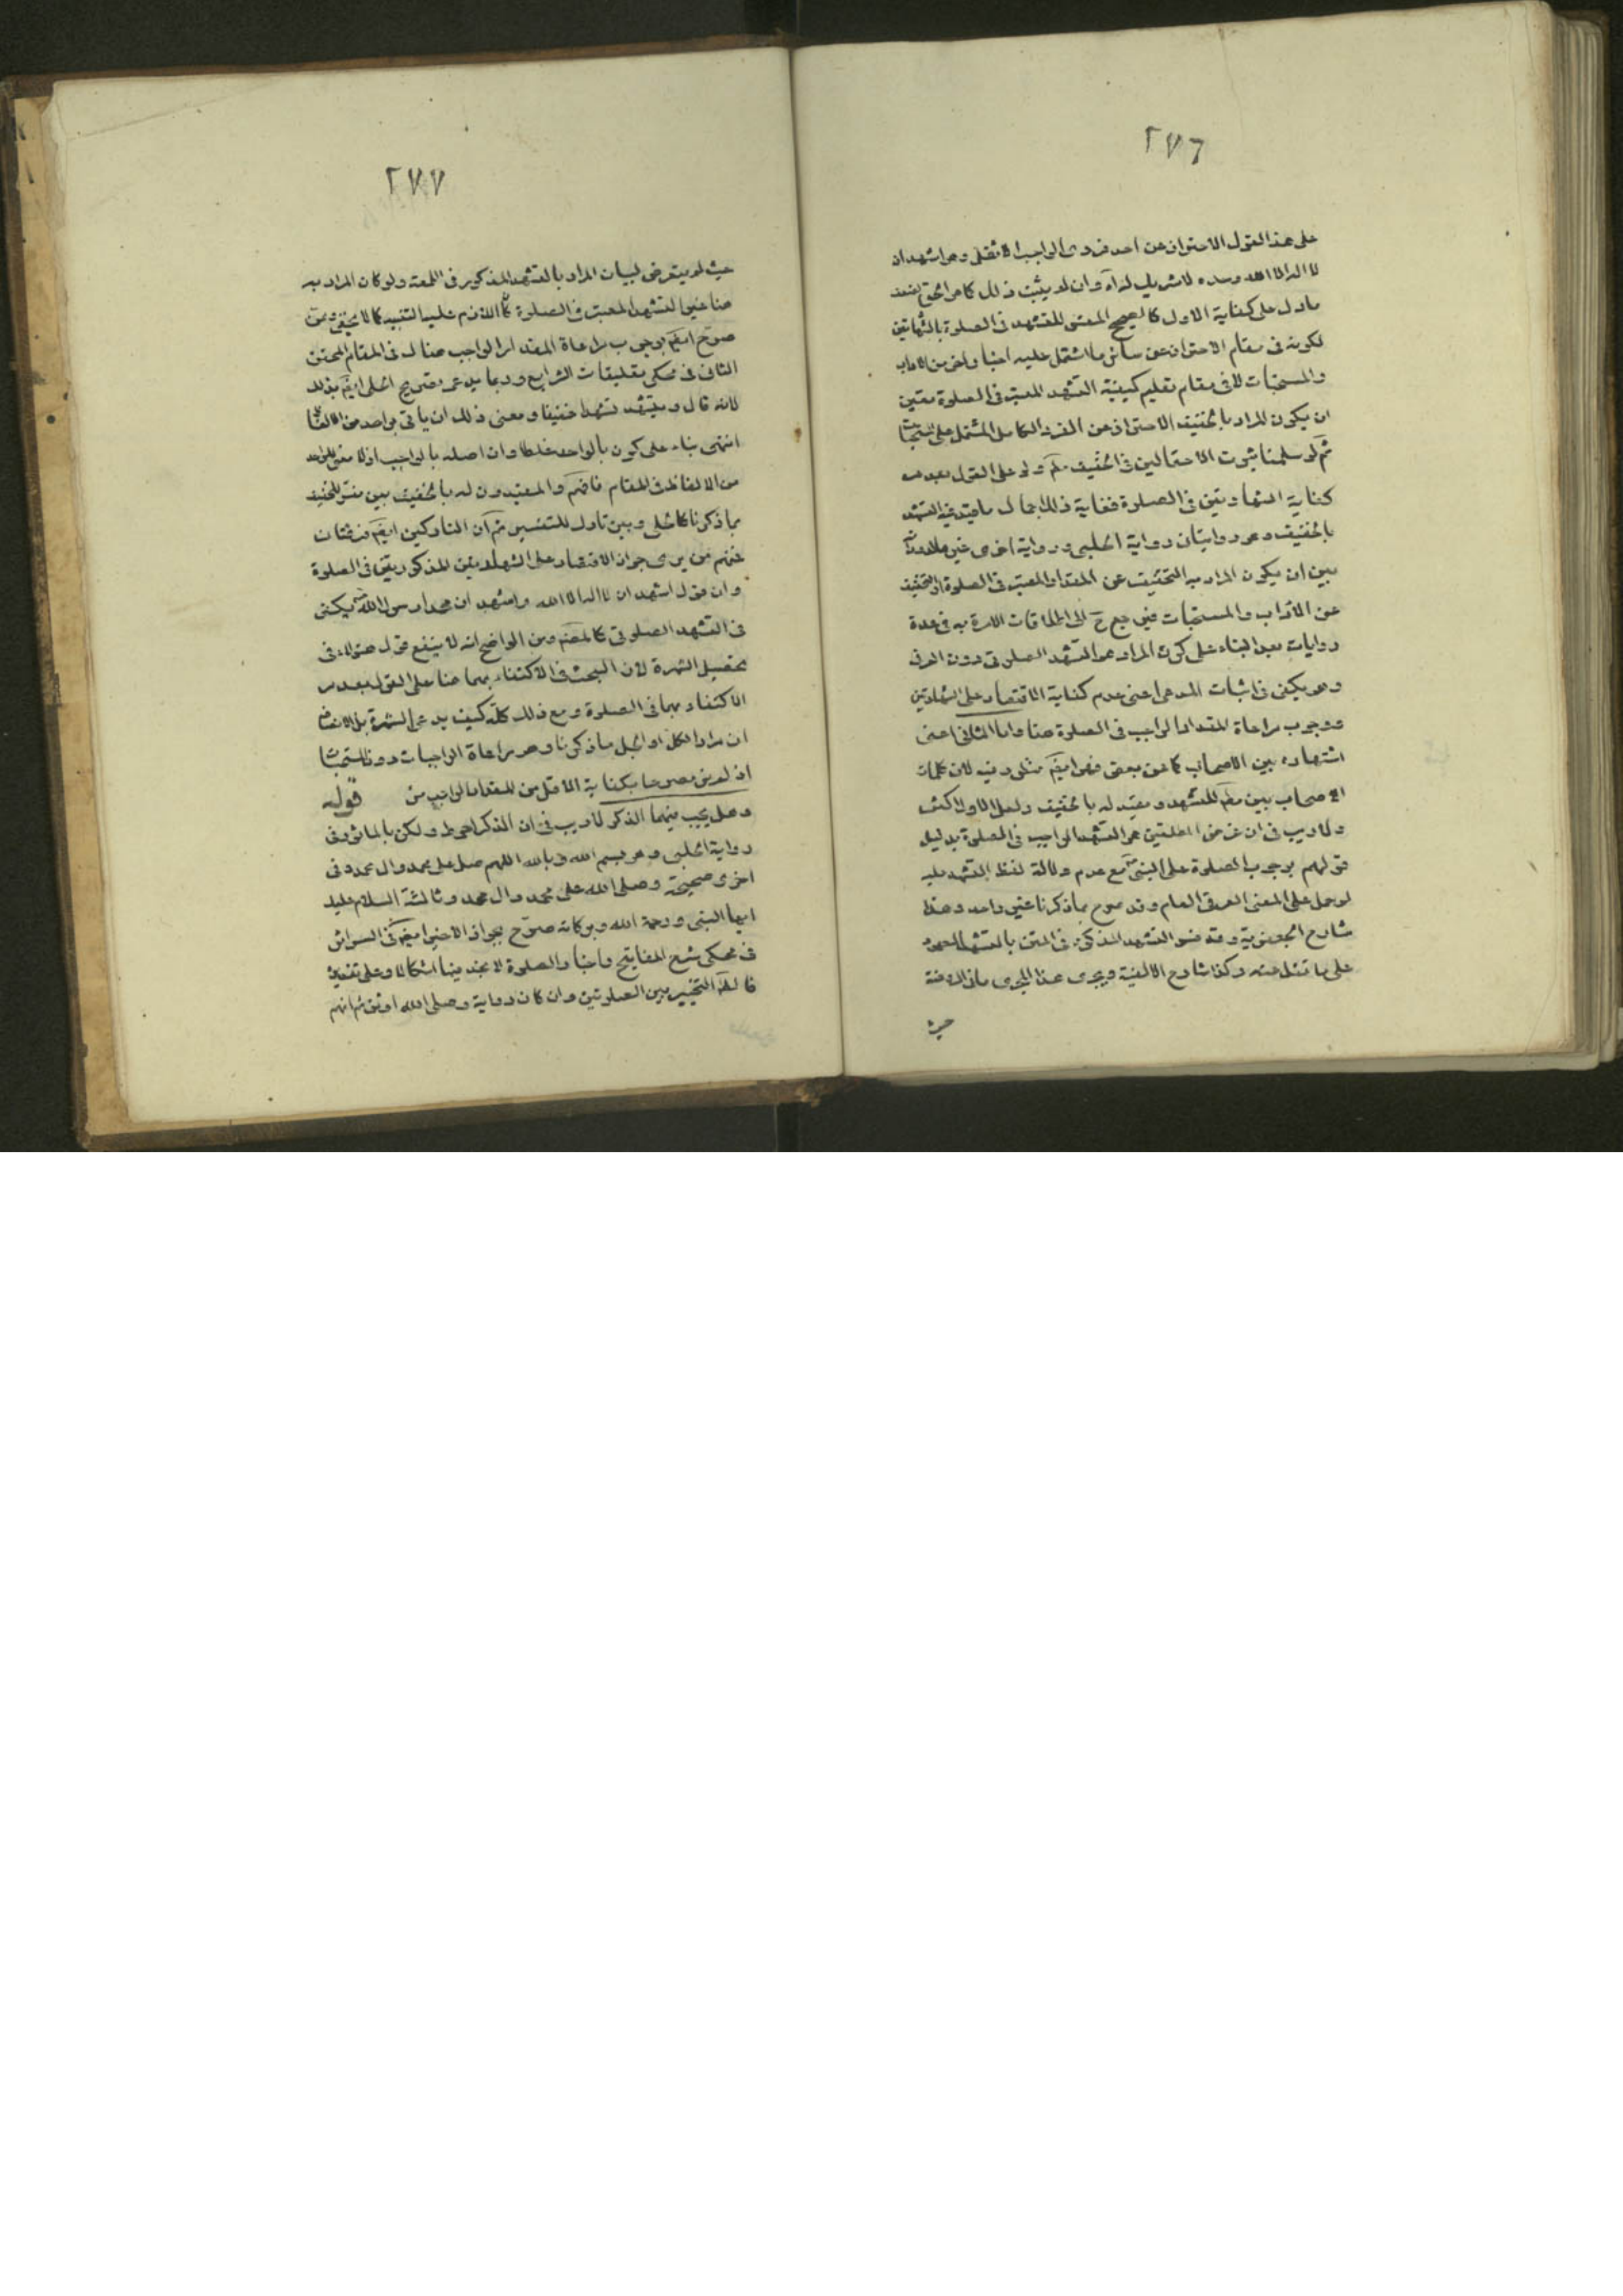 ٢٧٦
على هذا القول الاحتراز عن احد فردى الواجب الاثقل وهو اشهد ان
لا اله الا الله وحده لا شريك له اه وان لم يثبت ذلك كما هو الحق لضعف
ما دل على كفاية الاول كالصحيح المفسر للتشهد فى الصلوة بالشهادتين
لكونه فى مقام الاحتراز عن سائر ما اشتمل عليه احيانا واخر من الاداب
والمستحبات لا فى مقام تعليم كيفية التشهد المعتبر فى الصلوة معين
ان يكون المراد بالخفيف الاحتراز عن الفرد الكامل المشتمل على المستحبات
ثم لو سلمنا ثبوت الاحتمالين فى الخفيف مطم ولو على القول بعدم
كفاية الشهادتين فى الصلوة فغاية ذلك اجمال ما قيد فيه التشهد
بالخفيف وهو روايتان رواية الحلبى ورواية اخرى
بين ان يكون المراد به التخفيف عن المقدار المعتبر فى الصلوة او التخفيف
عن الاداب والمستحبات فيرجع ح الى اطلاقات الامرة به فى عدة
روايات بعد البناء على كون المراد هو التشهد الصلوتى دون العرفى
وهو يكفى فى اثبات المدعى اعنى عدم كفاية الاقتصار على الشهادتين
ووجوب مراعاة المقدار الواجب فى الصلوة هنا واما الثانى اعنى
اشتهاره بين الاصحاب كما عن بعض فهو ايضم مثله وفيه لان كلمات
الاصحاب بين مطلق للتشهد ومقيد له بالخفيف ولعل الاول اكثر
ولا ريب فى ان غرض المطلقين هو التشهد الواجب فى الصلوة بدليل
قولهم بوجوب الصلوة على النبى ص مع عدم دلالة لفظ التشهد عليه
لو حمل على المعنى العرفى العام وقد صرح بما ذكرنا غير واحد وهذا
شارح الجعفرية وقد فسر التشهد المذكور فى المتن بالتشهد المعهود
على ما نقل عنه وكذا شارح الالفية ويجرى هذا المجرى ما فى الروضة
حيث
٢٧٧
حيث لم يتعرض لبيان المراد بالتشهد المذكور فى اللمعة ولو كان المراد به
هنا غير التشهد المعتبر فى الصلوة كان اللازم عليه التنبيه كما لا يخفى وممن
صرح ايضم بوجوب مراعاة المقدار الواجب هنالك فى المقام المحقق
الثانى فى محكى تعليقات الشرايع وربما يدعى تصريح الحلى ايضم بذلك
لانه قال ويتشهد تشهدا خفيفا ومعنى ذلك ان ياتى بواحد من الالفاظ
انتهى بناء على كون بالواحد غلطا وان اصله بالواجب اذ لا معنى للواحد
من الالفاظ فى المقام فافهم والمقيدون له بالخفيف بين مفسر للخفيف
بما ذكرنا كالحلى وبين تارك للتفسير ثم ان التاركين ايضم فرقتان
فمنهم من يرى جواز الاقتصار على الشهادتين المذكورتين فى الصلوة
وان قول اشهد ان لا اله الا الله واشهد ان محمدا رسول الله ص يكفى
فى التشهد الصلوتى كالمصنم ومن الواضح انه لا ينفع قول هؤلاء فى
تحصيل الشهرة لان البحث فى الاكتفاء بهما هنا على القول بعدم
الاكتفاء بهما فى الصلوة ومع ذلك كله كيف يدعى الشهرة بل الانصاف
ان مراد الكل او الجل ما ذكرنا وهو مراعاة الواجبات دون المستحبات
اذ لم نر مصرحا بكفاية الاقل من المقدار الواجب من قوله
وهل يجب فيهما الذكر لا ريب فى ان الذكر احوط ولكن بالماثور فى
رواية الحلبى وهو بسم الله وبالله اللهم صل على محمد وال محمد وفى
اخرى صحيحة وصلى الله على محمد وال محمد وثالثة السلام عليك
ايها النبى ورحمة الله وبركاته صرح بجواز الاخير ايضم فى السرائر
فى محكى شرح المفاتيح واخبار الصلوة لا نجد فيها اشكالا وعلى تقديره
فالظم التخيير بين الصلوتين وان كان رواية وصلى الله اوثق ثم انهم